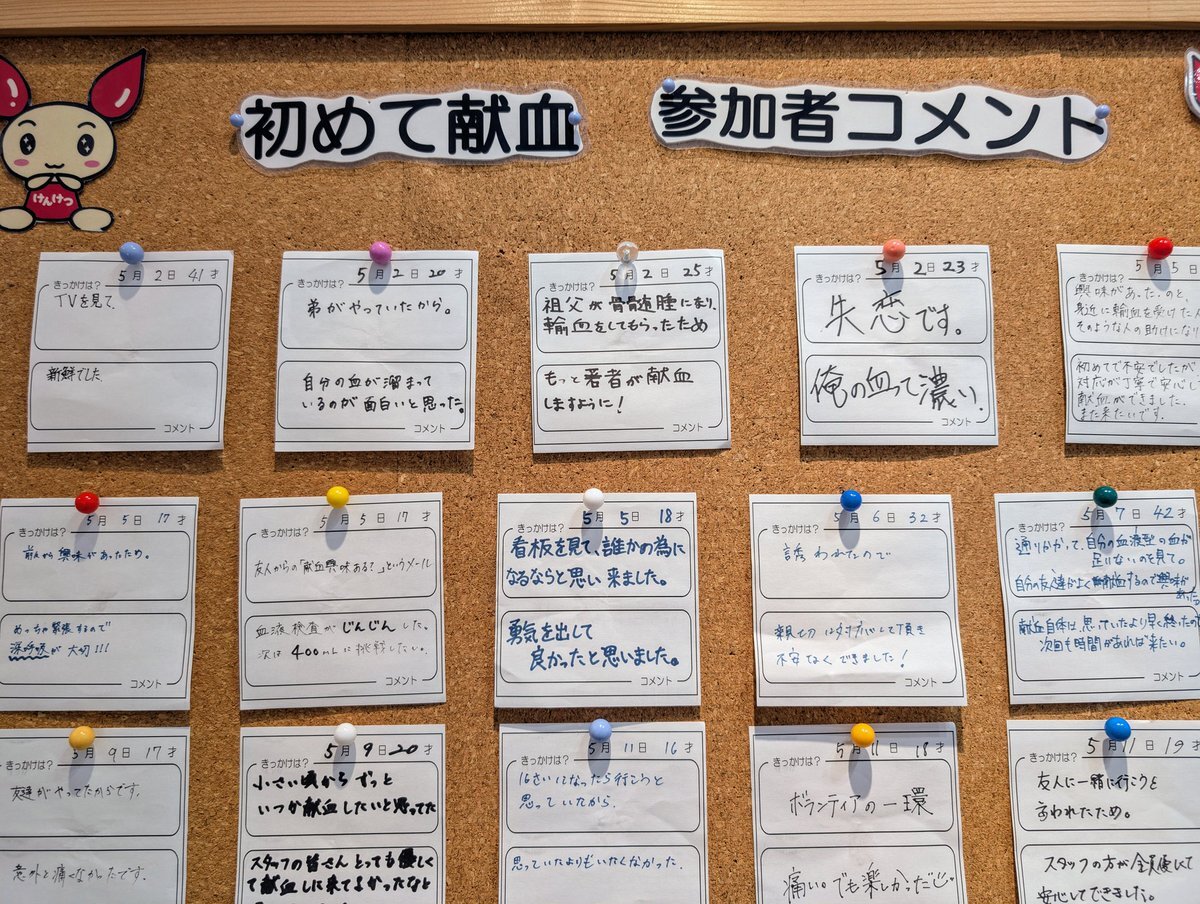 初めて献血 参加者コメント
けんけつ
5月2日 41才
きっかけは?
TVを見て.
新鮮でした.
コメント
5月2日 20才
きっかけは?
弟がやっていたから。
自分の血が溜まって
いるのが面白いと思った。
コメント
5月2日 25才
きっかけは?
祖父が骨髄腫になり、
輸血をしてもらったため
もっと若者が献血
しますように!
コメント
5月2日 23才
きっかけは?
失恋です。
俺の血って濃い.
コメント
5月5日
きっかけは?
興味があったのと、
身近に輸血を受けた人
そのような人の助けになり
初めてで不安でしたが
対応が丁寧で安心し
献血ができました.
また来たいです.
5月5日 17才
きっかけは?
前から興味があったため。
めっちゃ緊張するので
深呼吸が大切!!!
コメント
5月5日 17才
きっかけは?
友人からの「献血興味ある?」というメール
血液検査がじんじんした。
次は400mLに挑戦したい。
コメント
5月5日 18才
きっかけは?
看板を見て、誰かの為に
なるならと思い来ました。
勇気を出して
良かったと思いました。
コメント
5月6日 32才
きっかけは?
誘われたので
親切に対応して頂き
不安なくできました!
コメント
5月7日 42才
きっかけは?
通りかかって、自分の血液型の血が
足りないのを見て。
自分の友達がよく輸血するので興味が
あった
献血自体は思っていたより早く終ったので
次回も時間があれば来たい。
コメント
月9日 17才
きっかけは?
友達がやってたからです.
意外と痛くなかったです.
5月9日 20才
きっかけは?
小さい頃からずっと
いつか献血したいと思ってた
スタッフの皆さんとっても優しく
て献血しに来てよかったなと
5月11日 16才
きっかけは?
16さいになったら行こうと
思っていたから.
思っていたよりもいたくなかった.
5月11日 18才
きっかけは?
ボランティアの一環
痛い。でも楽しかった
5月11日 19才
きっかけは?
友人に一緒に行こうと
言われたため。
スタッフの方が全員優しくて
安心してできました。